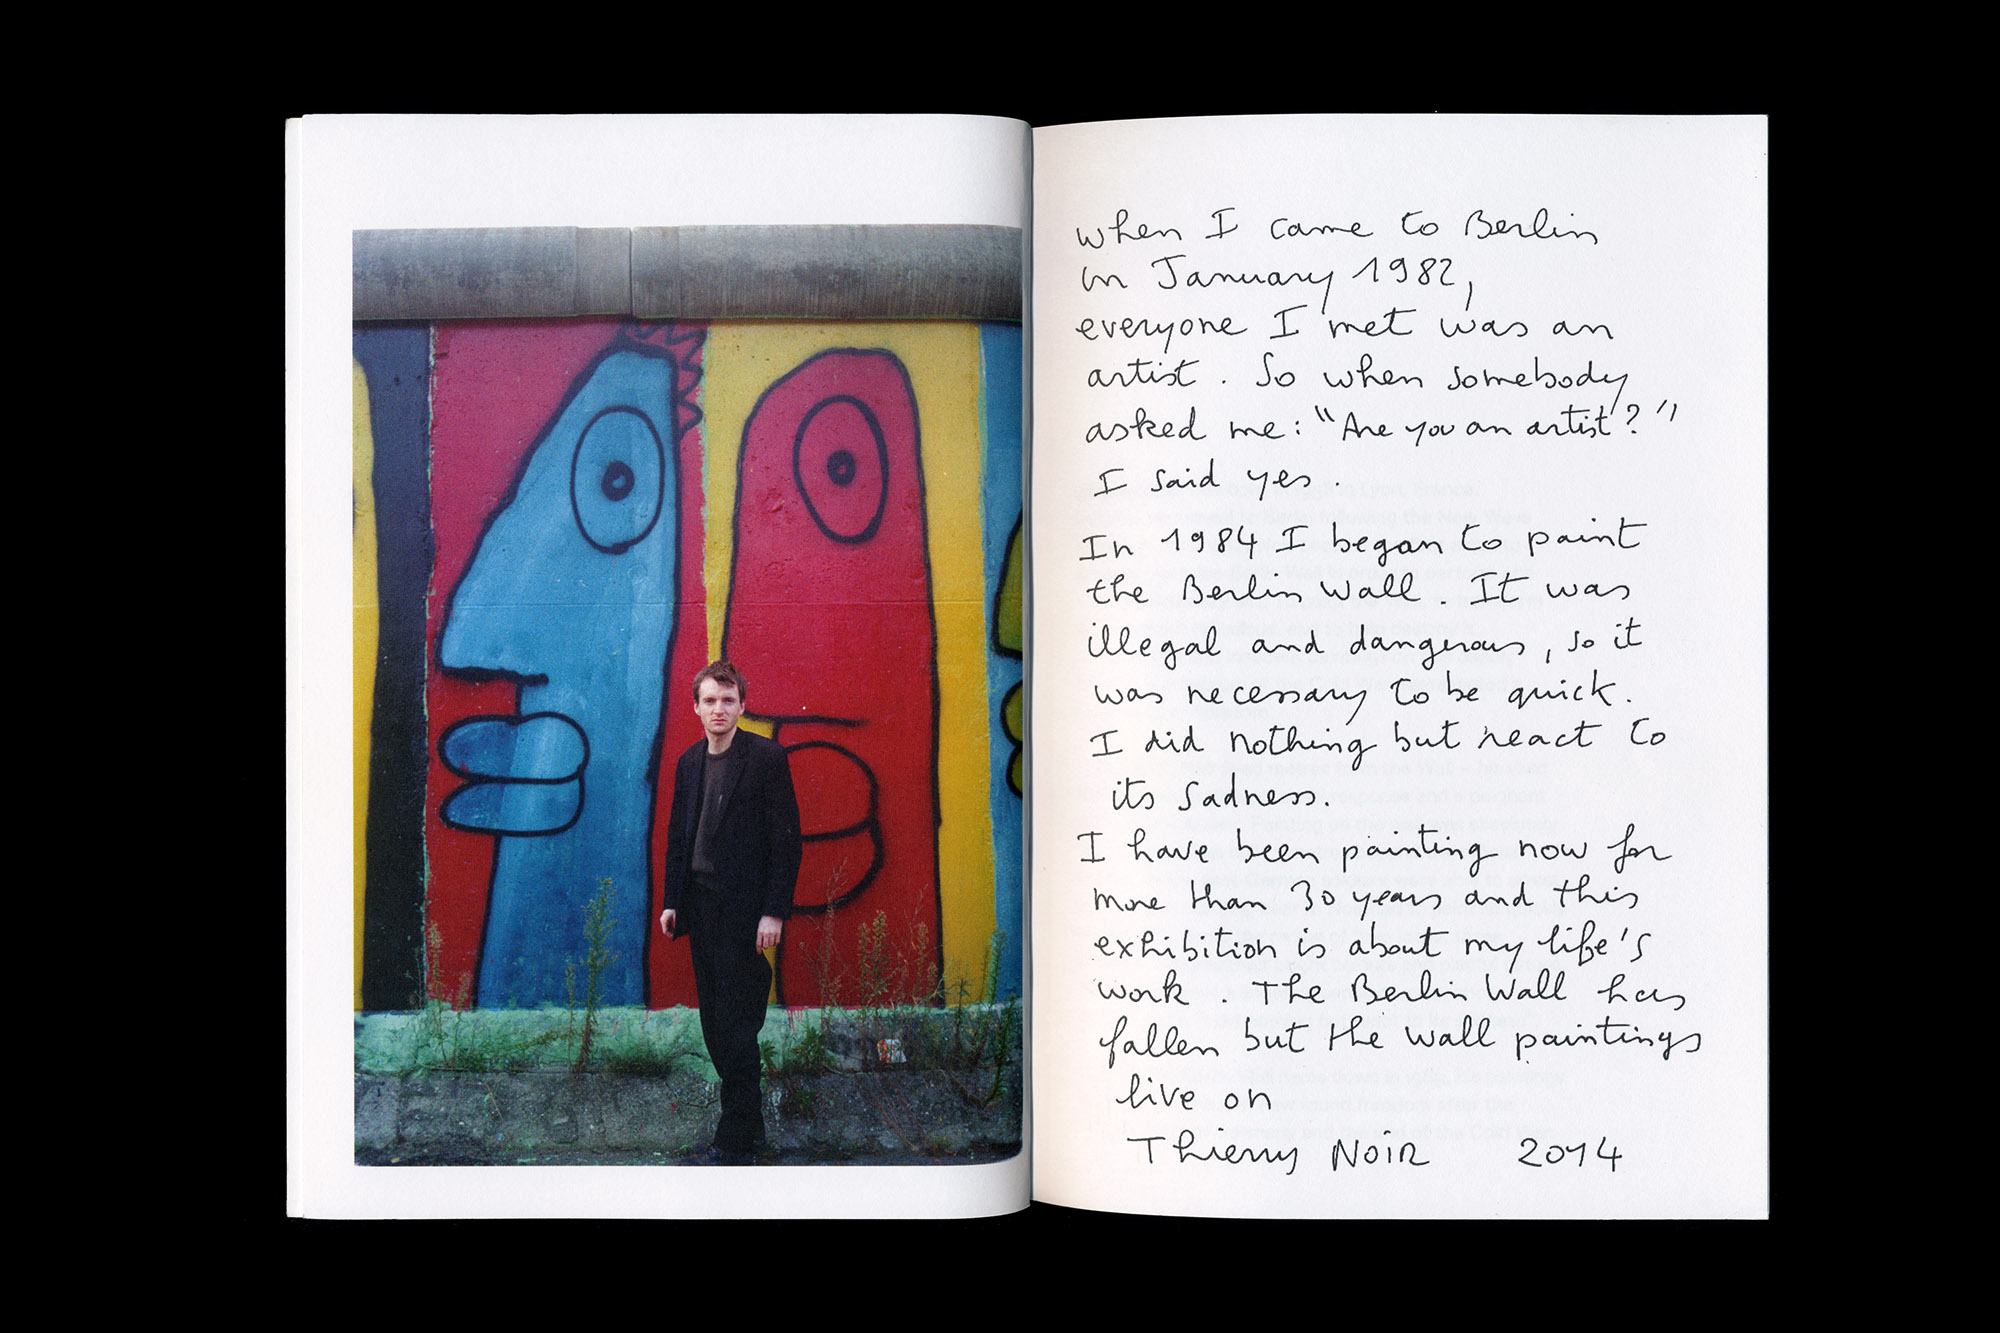 when I came to Berlin
in January 1982,
everyone I met was an
artist. So when somebody
asked me: "Are you an artist?"
I said yes.
In 1984 I began to paint
the Berlin Wall. It was
illegal and dangerous, so it
was necessary to be quick.
I did nothing but react to
its sadness.
I have been painting now for
more than 30 years and this
exhibition is about my life's
work. The Berlin Wall has
fallen but the wall paintings
live on
Thierry Noir 2014